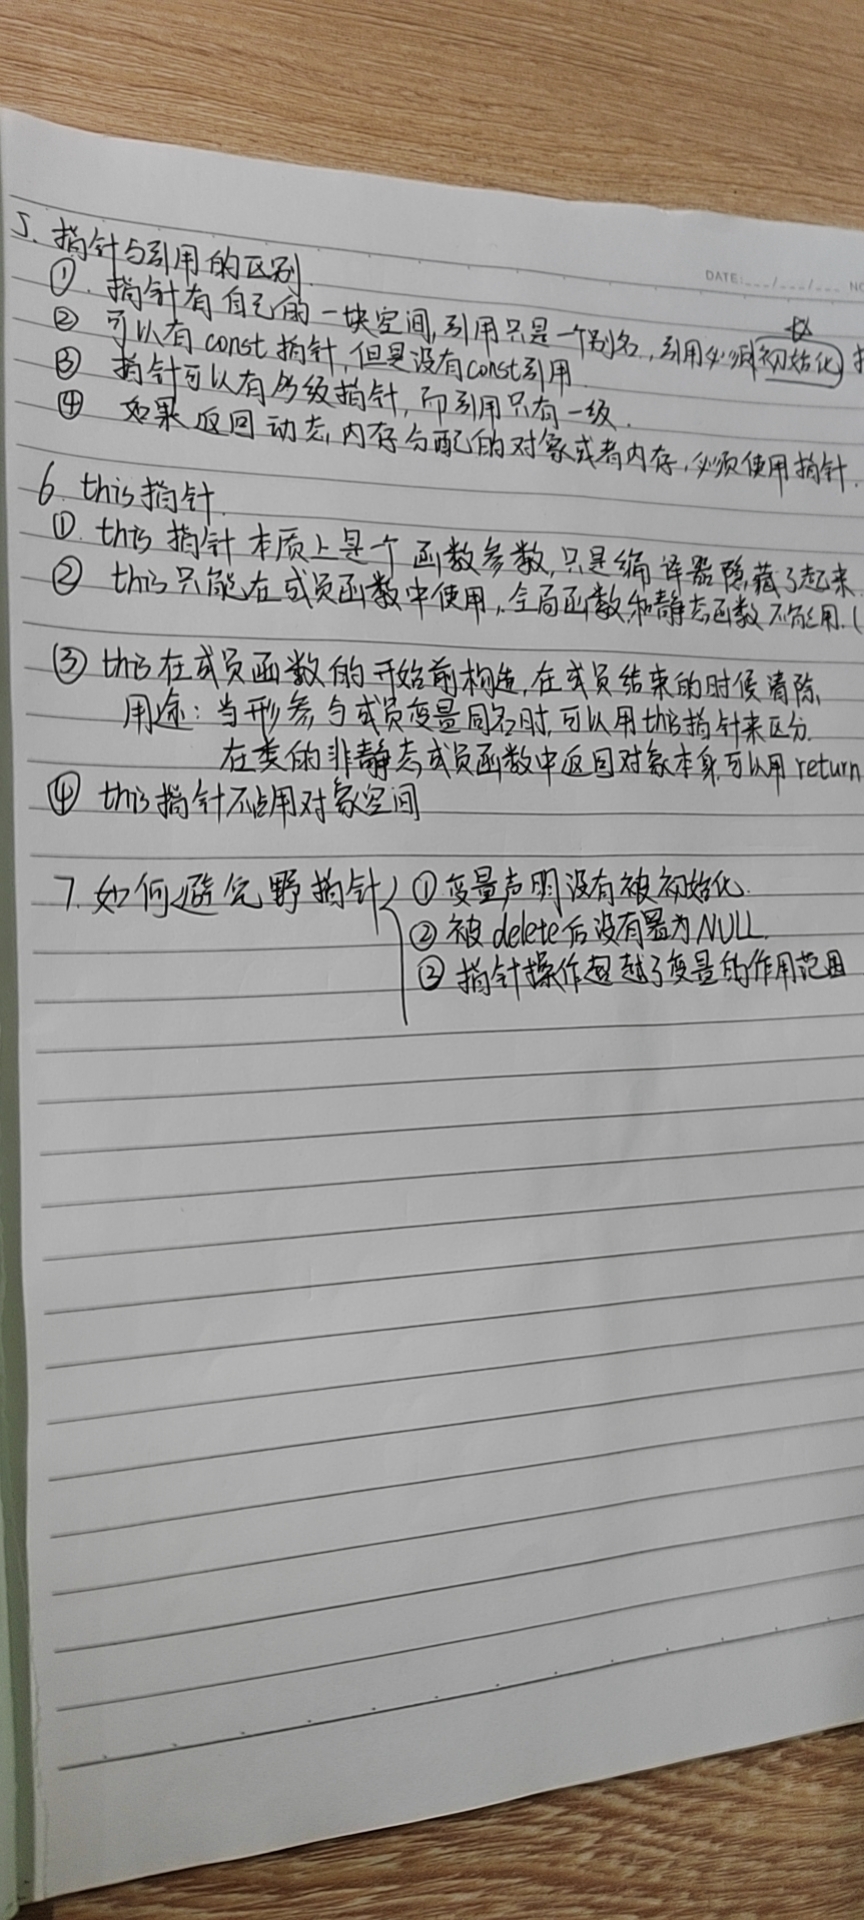 DATE: ___/___/___ NO
5. 指针与引用的区别.
①. 指针有自己的一块空间,引用只是一个别名,引用必须初始化 指
② 可以有const指针,但是没有const引用
③ 指针可以有多级指针,而引用只有一级.
④ 如果返回动态内存分配的对象或者内存,必须使用指针.
6. this指针.
①. this 指针本质上是个函数参数,只是编译器隐藏了起来
② this只能在成员函数中使用,全局函数和静态函数不能用.(
③ this在成员函数的开始前构造,在成员结束的时候清除,
用途:当形参与成员变量同名时,可以用this指针来区分.
在类的非静态成员函数中返回对象本身,可以用return
④ this指针不占用对象空间
7. 如何避免野指针
① 变量声明没有被初始化.
② 被delete后没有置为NULL.
③ 指针操作超越了变量的作用范围